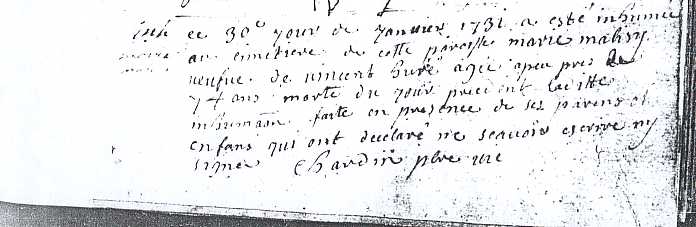 ce 30e jour de Janvier 1731 a esté inhumée
au cimitiere de cette paroisse marie
veufve de vincent huré agée apeu pres de
74 ans morte du jour precedent laditte
inhumaõn faite en presence de ses parens et
enfans qui ont declaré ne scavoir escrire ny
signer Chardin pbre